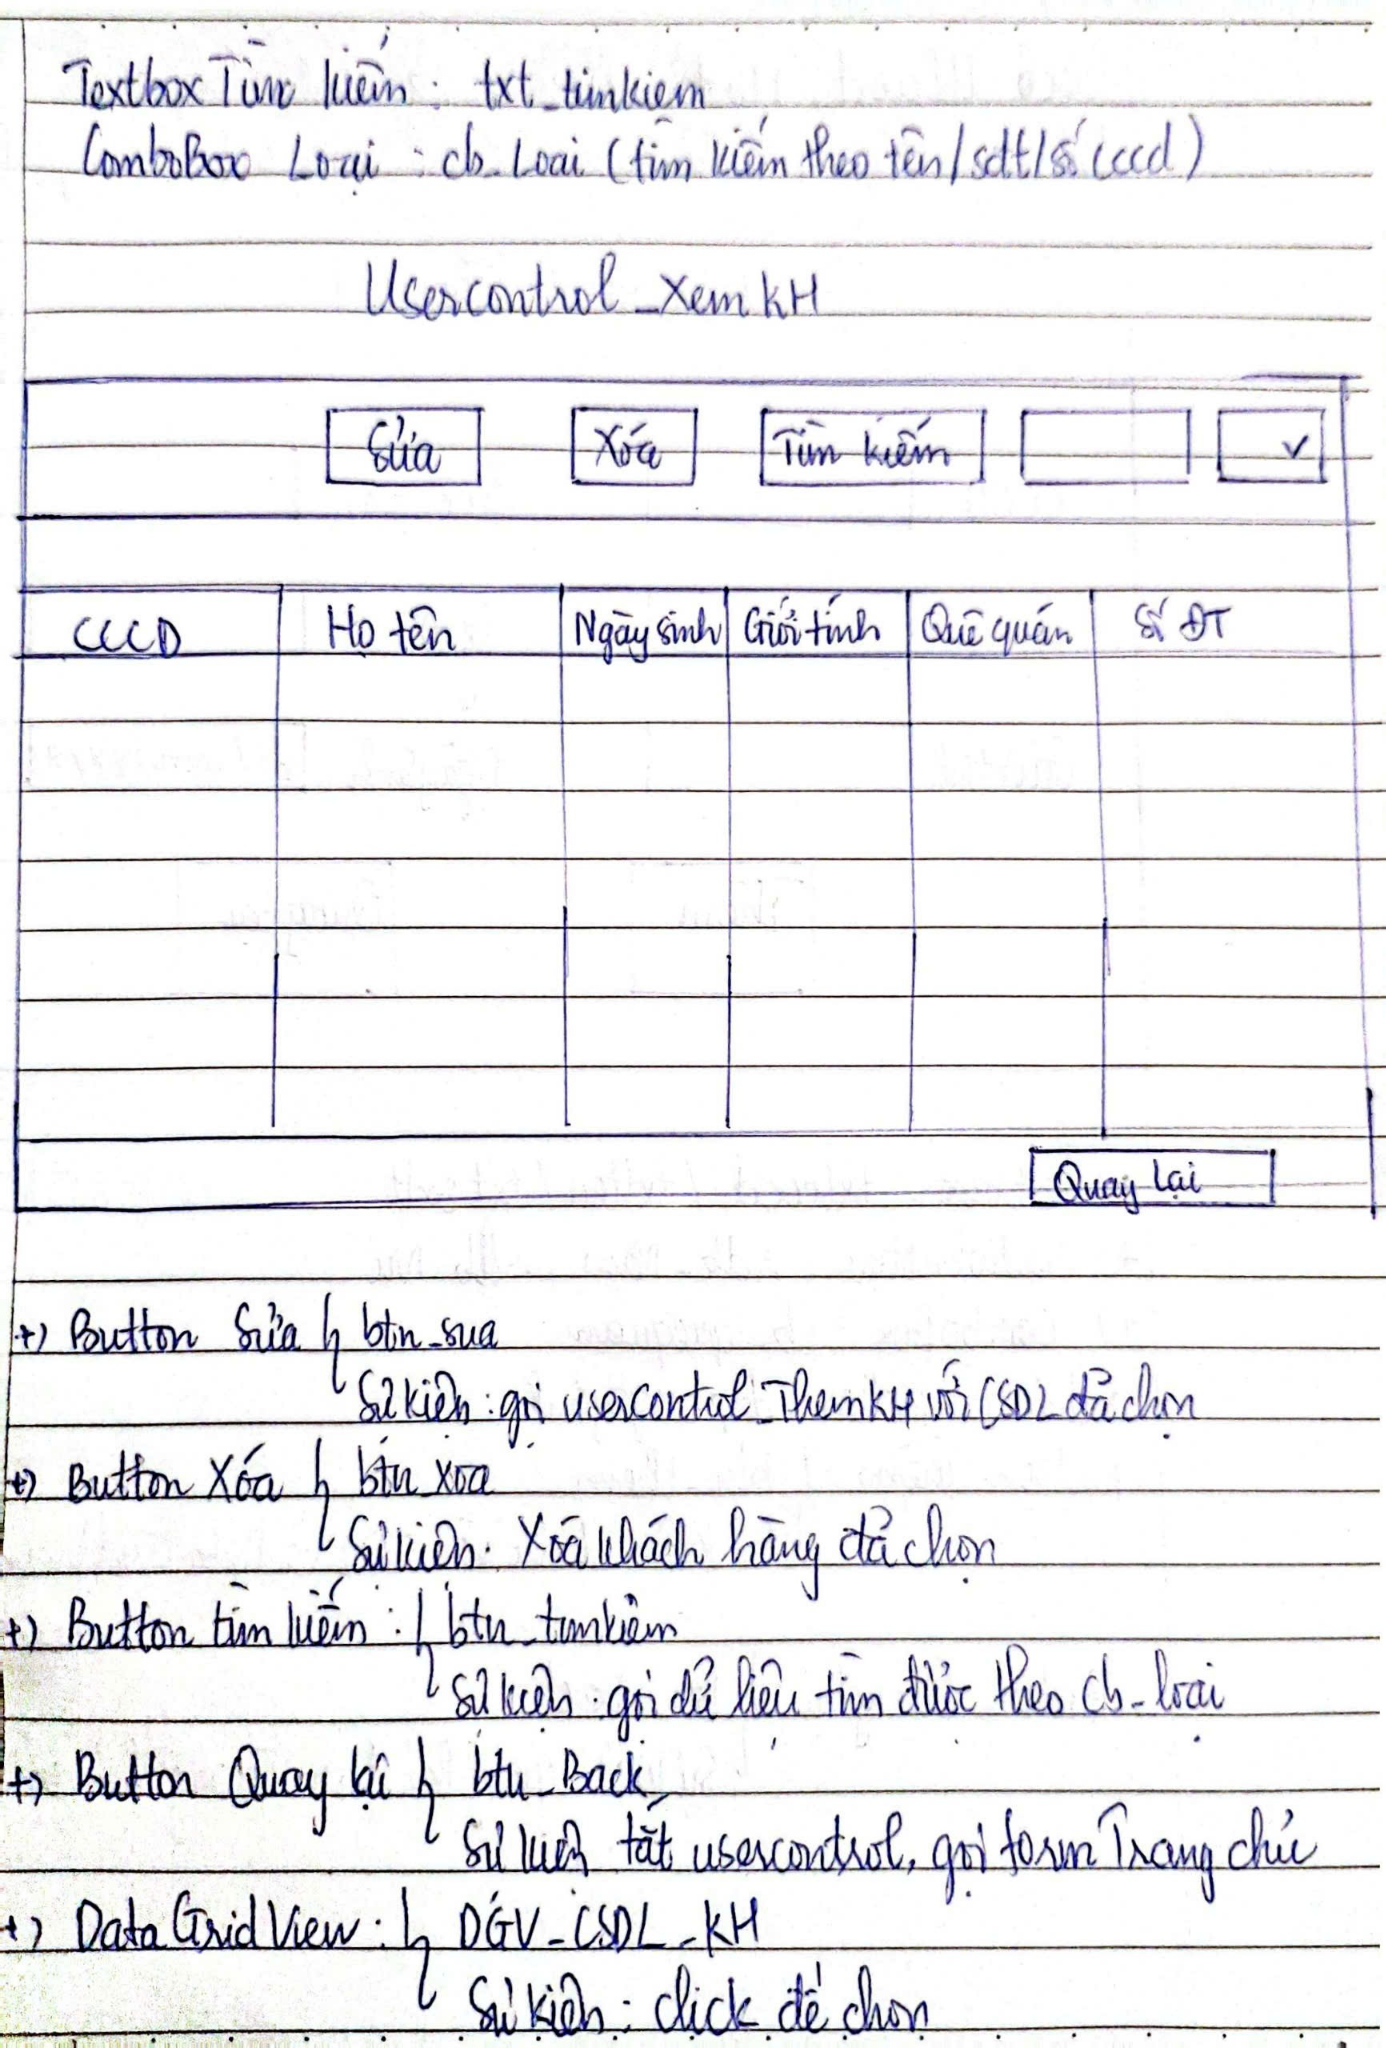 Textbox Tìm kiếm : txt_timkiem
ComboBox Loại : cb_Loai (tìm kiếm theo tên/sdt/số cccd)
Usercontrol_XemKH
Sửa Xóa Tìm kiếm
CCCD Họ tên Ngày sinh Giới tính Quê quán Số ĐT
Quay lại
+) Button Sửa { btn_sua
Sự kiện : gọi usercontrol_ThemKH với CSDL đã chọn
+) Button Xóa { btn_xoa
Sự kiện : Xóa khách hàng đã chọn
+) Button tìm kiếm : { btn_timkiem
Sự kiện : gọi dữ liệu tìm được theo cb_loai
+) Button Quay lại { btn_Back
Sự kiện tắt usercontrol, gọi form Trang chủ
+) DataGridView : { DGV_CSDL_KH
Sự kiện : click để chọn